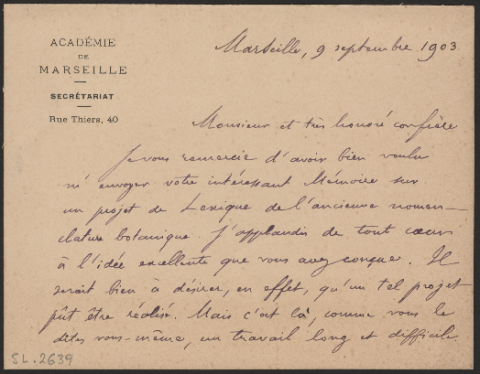 ACADÉMIE
DE
MARSEILLE
SECRÉTARIAT
Rue Thiers, 40
Marseille, 9 septembre 1903
Monsieur et très honoré confrère
Je vous remercie d'avoir bien voulu
m'envoyer votre intéressant Mémoire sur
un projet de Lexique de l'ancienne nomen-
clature botanique. J'applaudis de tout cœur
à l'idée excellente que vous avez conçue. Il
serait bien à désirer, en effet, qu'un tel projet
pût être réalisé. Mais c'est là, comme vous le
dites vous-même, un travail long et difficile.
SL.2639